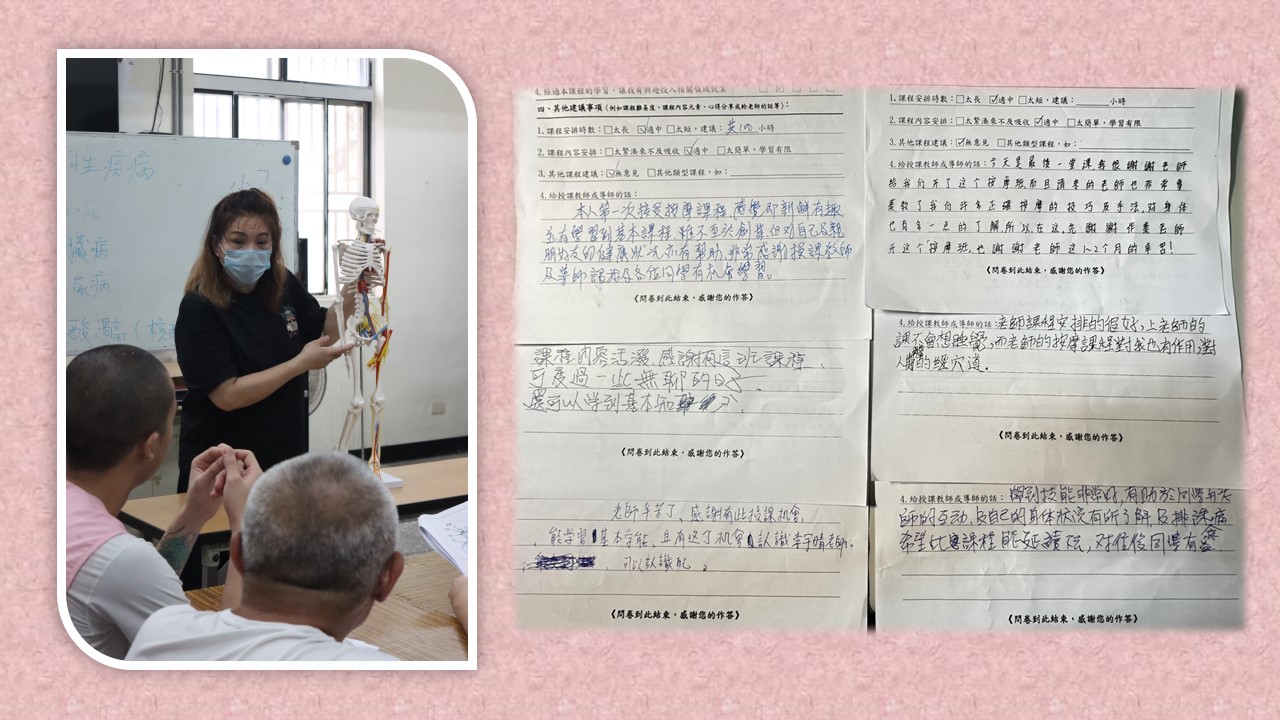 性疾病
臟病
尿病
酸濁高（核
4.經過本課程的學習，讓我有興趣投入相關領域就業
四、其他建議事項（例如課程難易度、課程內容元素、心得分享或給老師的話等）：
1.課程安排時數：□太長 ☑適中 □太短，建議： 小時
2.課程內容安排：□太緊湊來不及吸收 ☑適中 □太簡單，學習有限
3.其他課程建議：☑無意見 □其他類型課程，如：
4.給授課教師或導師的話：
本人第一次接受按摩課程，感覺即新鮮有趣
並有學習到基本課程，雖不至於創業，但對自己及親
朋好友的健康狀況亦有幫助，非常感謝授課教師
及導師讓我及各位同學有機會學習。
《問卷到此結束，感謝您的作答》
課程內容活潑，感謝有這班課程，
可度過一些無聊的日子
還可以学到基本知
《問卷到此結束，感謝您的作答》
老師辛苦了，感謝有此授課机會，
能学習基本字能，且有这了机會認識李宇晴老師。
可以認識妳。
《問卷到此結束，感謝您的作答》
1.課程安排時數：□太長 ☑適中 □太短，建議： 小時
2.課程內容安排：□太緊湊來不及吸收 ☑適中 □太簡單，學習有限
3.其他課程建議：☑無意見 □其他類型課程，如：
4.給授課教師或導師的話：今天是最後一堂課，我很謝謝老師
給我们开了这个按摩班而且請來的老師也非常專
業教了我们許多正確按摩的技巧及手法，對身体
也有多一点的了解，所以在这先謝謝作業老師
开这个按摩班，也謝謝老師这1~2个月的辛苦！
《問卷到此結束，感謝您的作答》
4.給授課教師或導師的話：老師課程安排的很好，上老師的
課不會想睡覺，而老師的按摩課程對我也有作用，對
人體的經穴道．
《問卷到此結束，感謝您的作答》
4.給授課教師或導師的話：學到技能非常好，有助於同學与老
師的互動，与自己的身体狀況有所了解及排課病
希望此課程能延續玩，对住後同學有益
《問卷到此結束，感謝您的作答》